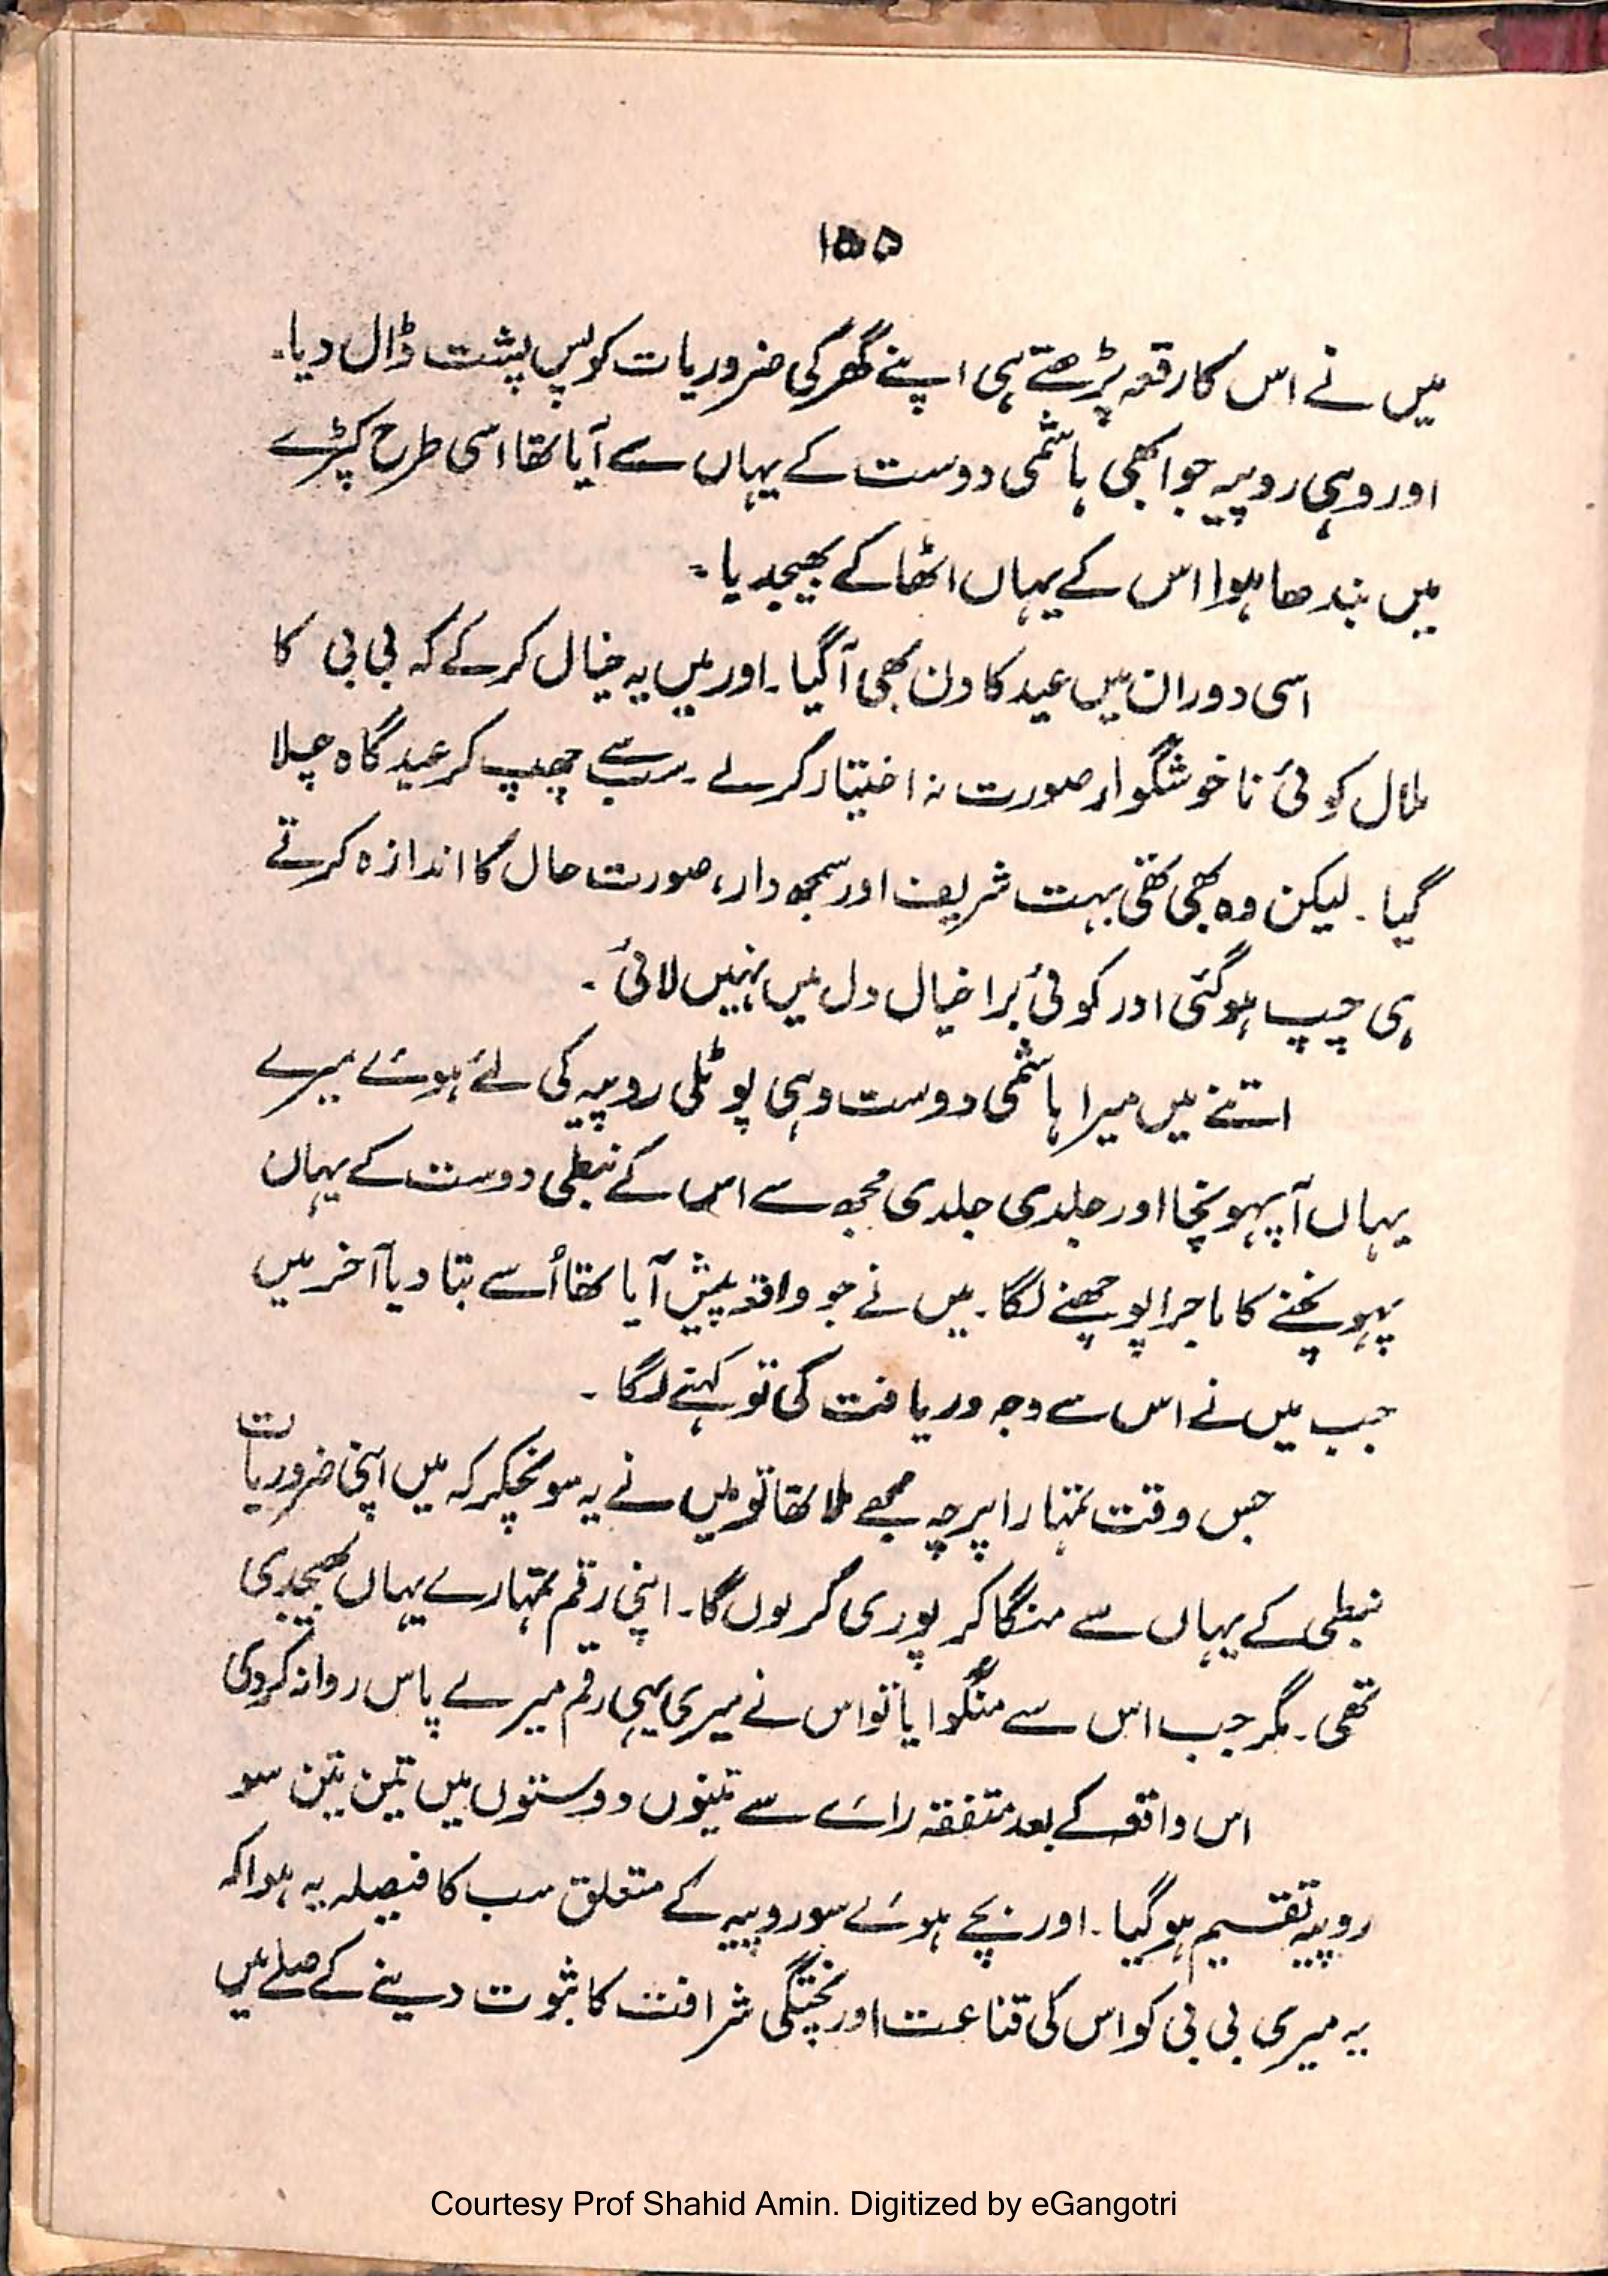 ۱۵۵
میں نے اس کا رقعہ پڑھتے ہی اپنے گھر کی ضروریات کو پس پشت ڈال دیا۔
اور وہی روپیہ جو ابھی ہاشمی دوست کے یہاں سے آیا تھا اسی طرح کپڑے
میں بندھا ہوا اس کے یہاں اٹھا کے بھیجدیا۔
اسی دوران میں عید کا دن بھی آگیا۔ اور میں یہ خیال کر کے کہ بی بی کا
ملال کوئی ناخوشگوار صورت نہ اختیار کر لے۔ سب سے چھپ کر عید گاہ چلا
گیا۔ لیکن وہ بھی تھی بہت شریف اور سمجھ دار، صورت حال کا اندازہ کرتے
ہی چپ ہوگئی اور کوئی برا خیال دل میں نہیں لائی۔
اتنے میں میرا ہاشمی دوست وہی پوٹلی روپیہ کی لئے ہوئے میرے
یہاں آپہونچا اور جلدی جلدی مجھ سے اس کے نبطی دوست کے یہاں
پہونچنے کا ماجرا پوچھنے لگا۔ میں نے جو واقعہ پیش آیا تھا اُسے بتا دیا آخر میں
جب میں نے اس سے وجہ دریافت کی تو کہنے لگا۔
جس وقت تمہارا پرچہ مجھے ملا تھا تو میں نے یہ سونچکر کہ میں اپنی ضروریات
نبطی کے یہاں سے منگا کر پوری کر لوں گا۔ اپنی رقم تمہارے یہاں بھیجدی
تھی۔ مگر جب اس سے منگوایا تو اس نے میری یہی رقم میرے پاس روانہ کردی
اس واقعہ کے بعد متفقہ رائے سے تینوں دوستوں میں تین تین سو
روپیہ تقسیم ہوگیا۔ اور بچے ہوئے سو روپیہ کے متعلق سب کا فیصلہ یہ ہوا کہ
یہ میری بی بی کو اس کی قناعت اور پختگی شرافت کا ثبوت دینے کے صلے میں
Courtesy Prof Shahid Amin. Digitized by eGangotri